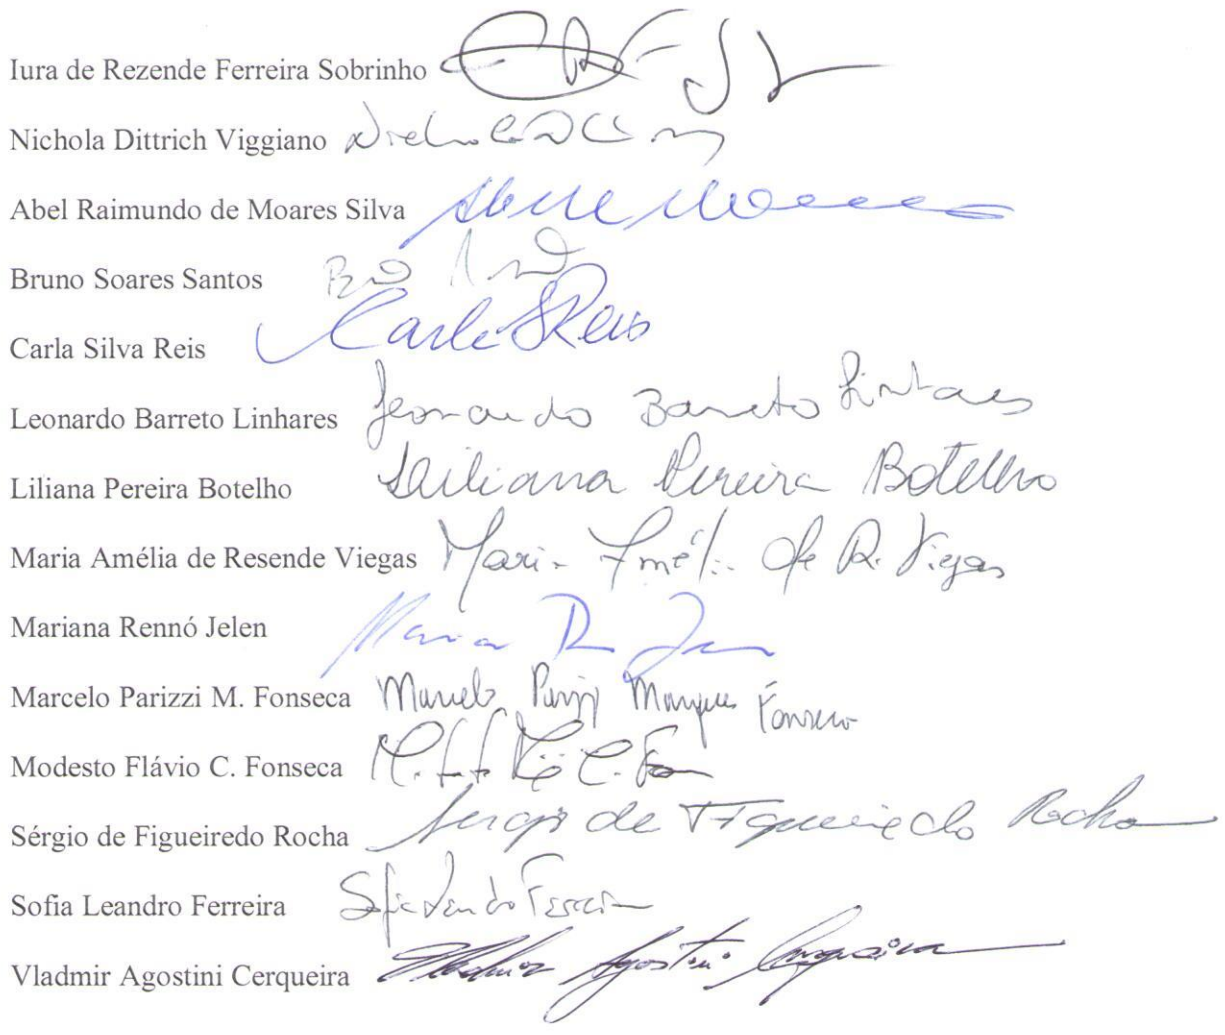 Iura de Rezende Ferreira Sobrinho
Nichola Dittrich Viggiano
Abel Raimundo de Moares Silva
Bruno Soares Santos
Carla Silva Reis Carla S Reis
Leonardo Barreto Linhares Leonardo Barreto Linhares
Liliana Pereira Botelho Liliana Pereira Botelho
Maria Amélia de Resende Viegas Maria Amélia de R. Viegas
Mariana Rennó Jelen
Marcelo Parizzi M. Fonseca Marcelo Parizzi Marques Fonseca
Modesto Flávio C. Fonseca
Sérgio de Figueiredo Rocha Sergio de Figueiredo Rocha
Sofia Leandro Ferreira Sofia Leandro Ferreira
Vladmir Agostini Cerqueira Vladmir Agostini Cerqueira